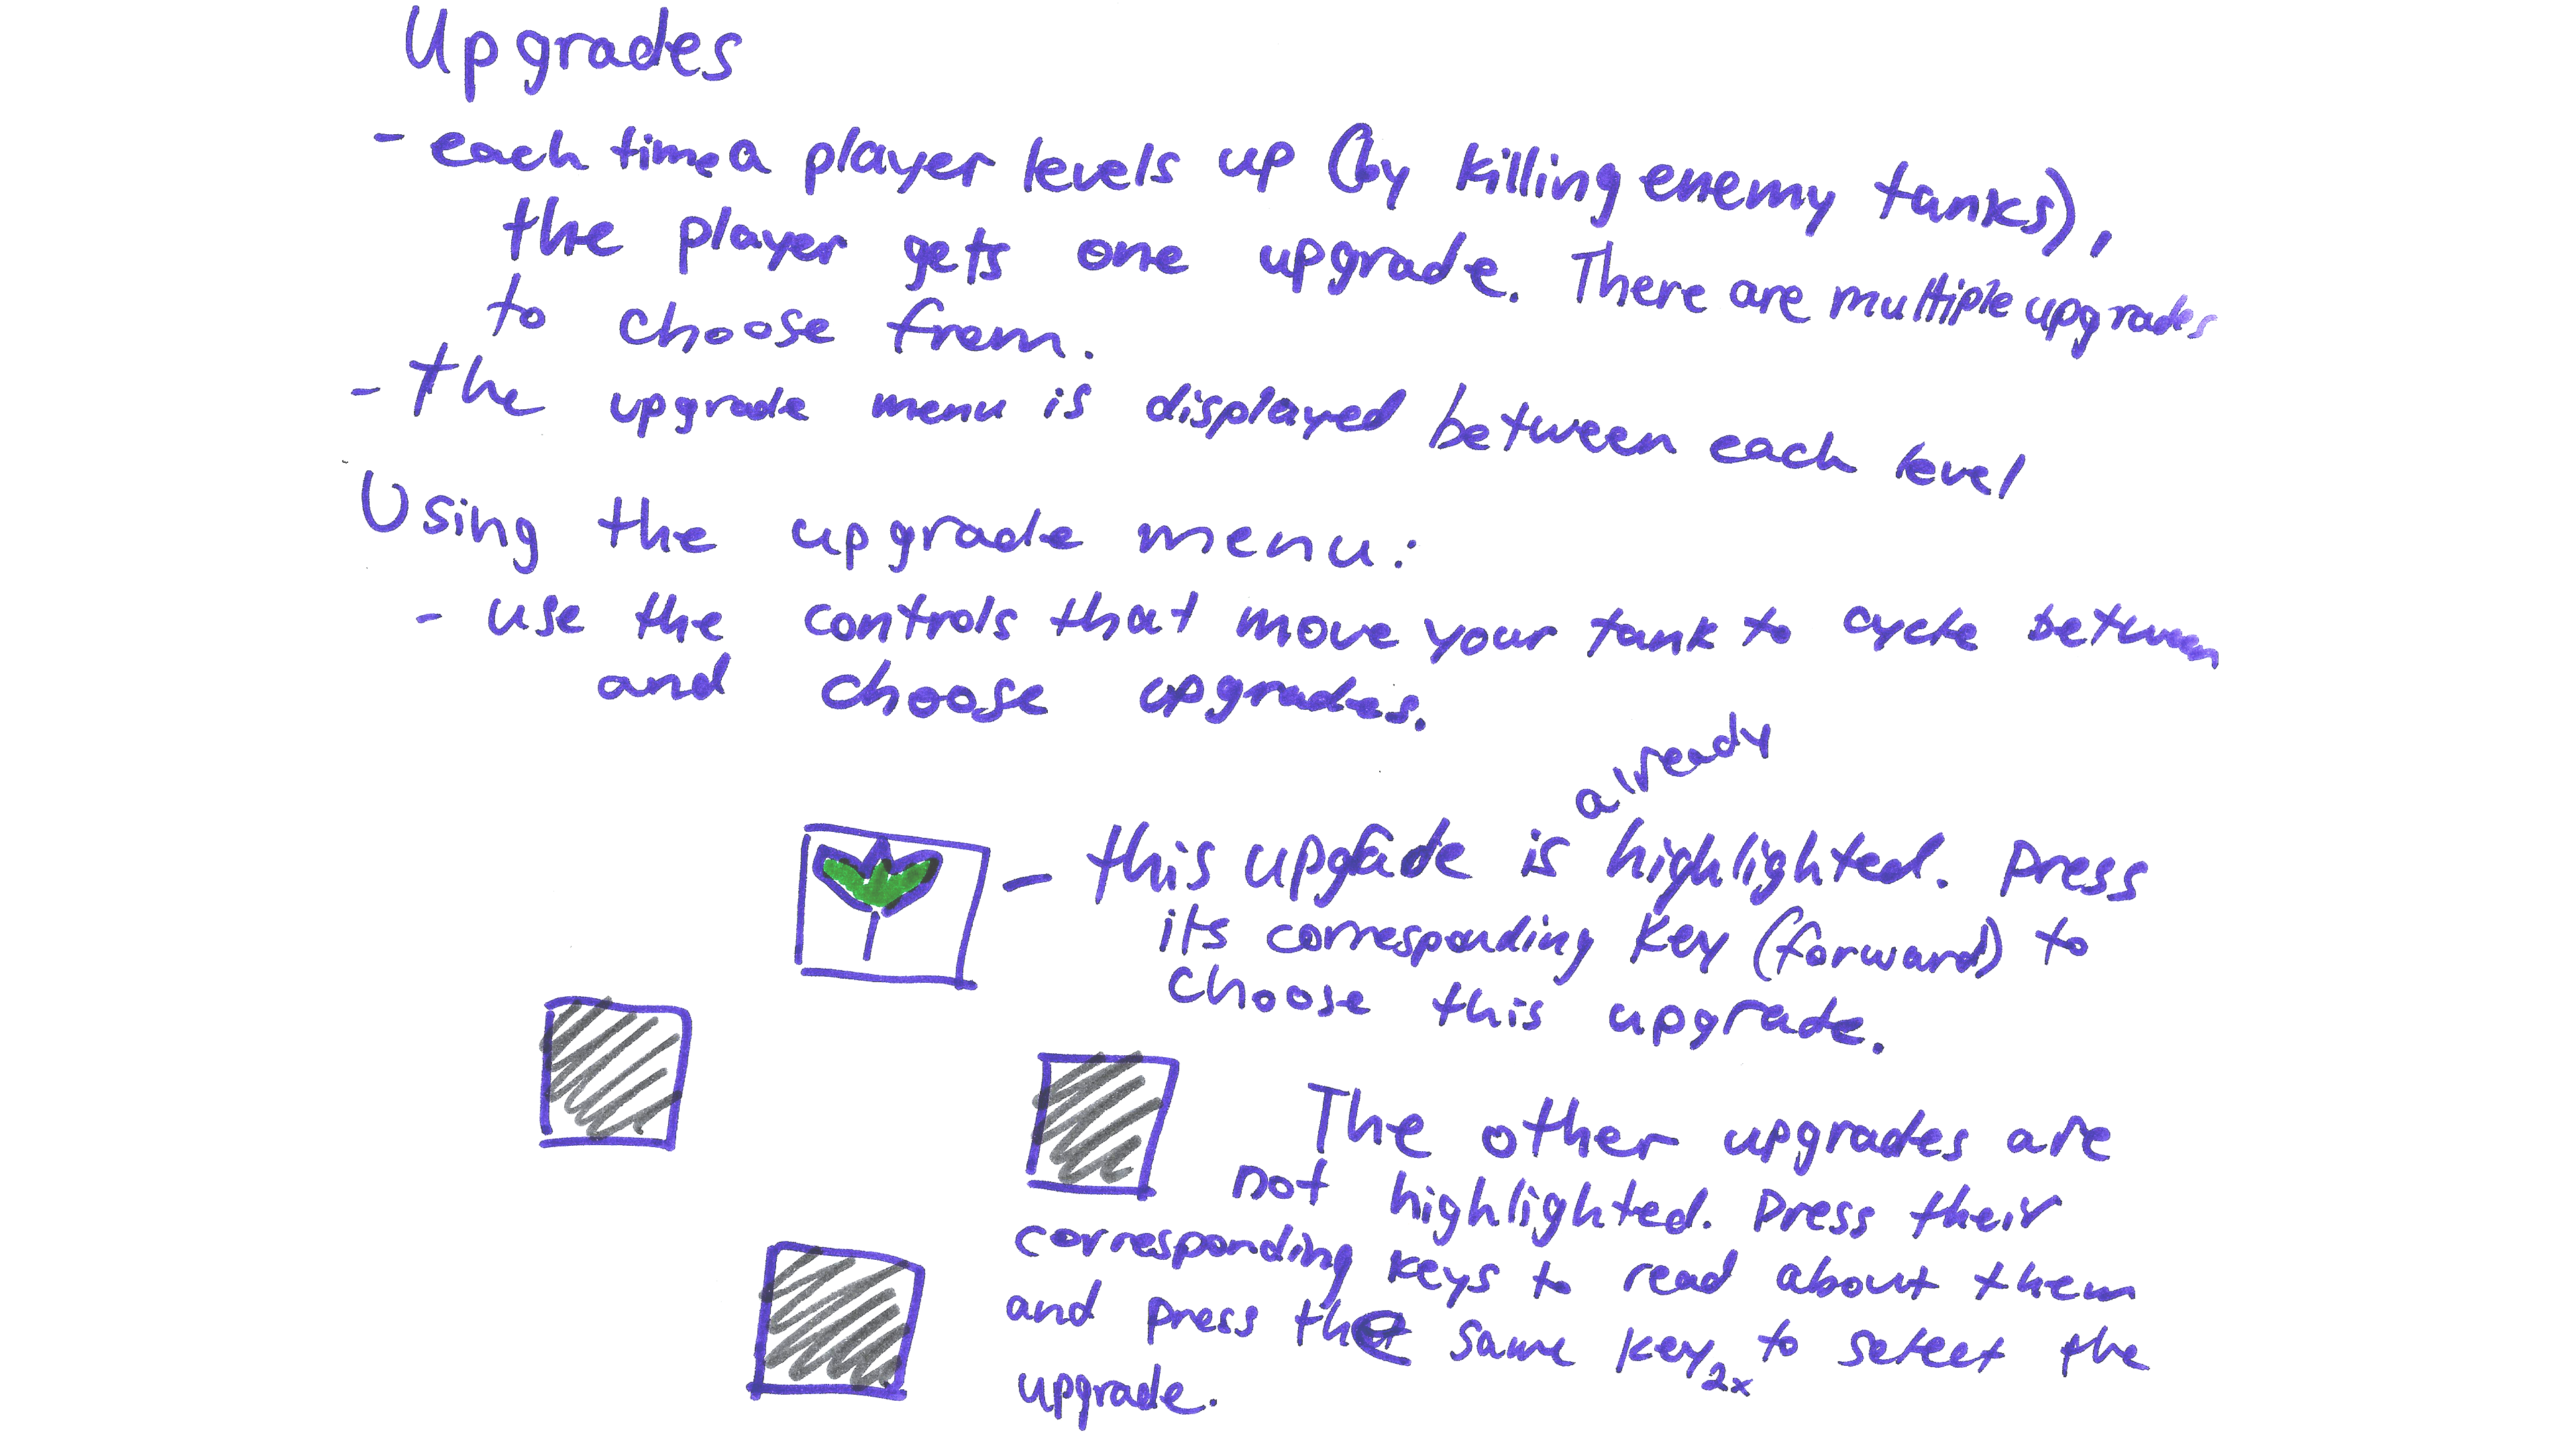 Upgrades
- each time a player levels up (by killing enemy tanks),
the player gets one upgrade. There are multiple upgrades
to choose from.
- the upgrade menu is displayed between each level
Using the upgrade menu:
- use the controls that move your tank to cycle between
and choose upgrades.
already
- this upgrade is highlighted. Press
its corresponding key (forward) to
choose this upgrade.
The other upgrades are
not highlighted. Press their
corresponding keys to read about them
and press the same key 2x to select the
upgrade.